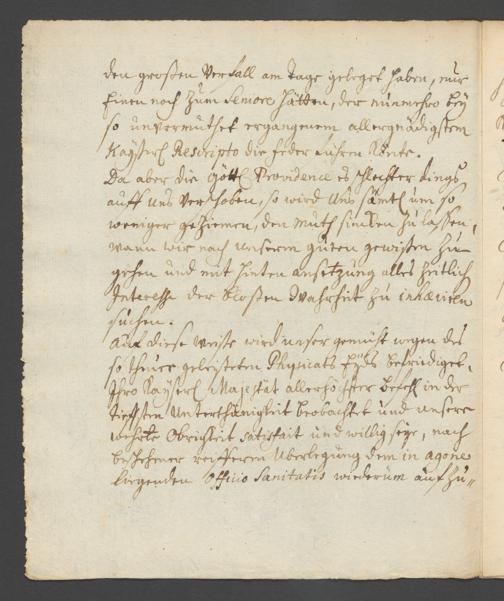 den großen Verfall am Tage geleget haben, nur
Einen noch zum Seniore hätten, der nunmehro bey
so unvermuthet ergangenem allergnädigstem
Kayserl Rescripto die feder führen könte.
Da aber die Göttl Providence es schlechter dings
auff uns verschoben, so wird uns sämtl um so
weniger geziemen, den Muth sincken zu lassen,
wann wir nach unserm guten gewißen zu
gehen und mit hinten ansetzung alles zeitlich
Interesse der bloßen Wahrheit zu inhæriren
suchen.
Auf diese weise wird unser gemüth wegen des
so theuer geleisteten Physicats Eyds befriediget,
Ihro Kayserl Majestät allerhöchster befehl in der
tieffsten Unterthänigkeit beobachtet und unsere
wehrte Obrigkeit satisfait und willig seye, nach
beschehener reifferen Uberlegung dem in agone
liegenden Officio Sanitatis wiederum aufzu-